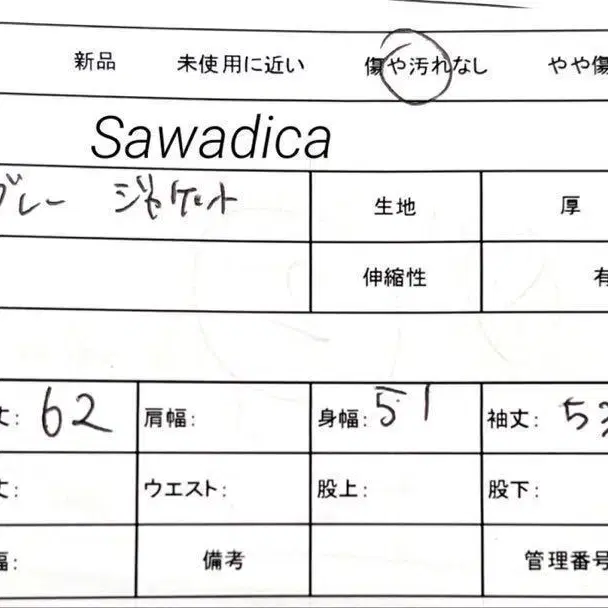 新品 未使用に近い 傷や汚れなし やや傷
Sawadica
グレー ジャケット 生地 厚
伸縮性 有
丈: 62 肩幅: 身幅: 51 袖丈: 53
丈: ウエスト: 股上: 股下:
幅: 備考 管理番号